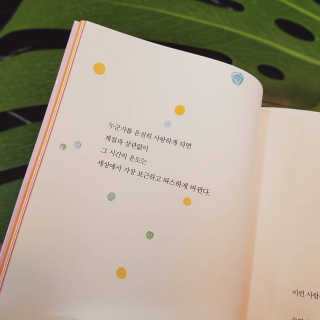 누군가를 온전히 사랑하게 되면
계절과 상관없이
그 시간의 온도는
세상에서 가장 포근하고 따스하게 바뀐다.
이런 사랑